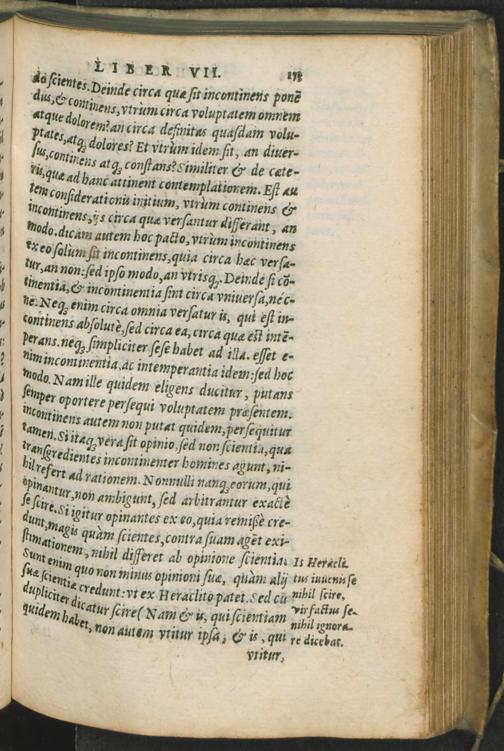 LIBER VII.
do scientes. Deinde circa quæ sit incontinens ponẽ
dus, & continens, vtrùm circa voluptatem omnem
atque dolorem? an circa definitas quasdam volu-
ptates, atq; dolores? Et vtrùm idem sit, an diuer-
sus, continens atq; constans? Similiter & de cæte-
ris, quæ ad hanc attinent contemplationem. Est au
tem considerationis initium, vtrùm continens &
incontinens, ijs circa quæ versantur differant, an
modo. dicam autem hoc pacto, vtrùm incontinens
ex eo solùm sit incontinens, quia circa hæc versa-
tur, an non: sed ipso modo, an vtrisq;. Deinde si cõ-
tinentia, & incontinentia sint circa vniuersa, néc-
ne. Neq; enim circa omnia versatur is, qui est in-
continens absolutè, sed circa ea, circa quæ est intẽ-
perans. neq; simpliciter sese habet ad illa. esset e-
nim incontinentia, ac intemperantia idem: sed hoc
modo. Nam ille quidem eligens ducitur, putans
semper oportere persequi voluptatem præsentem.
incontinens autem non putat quidem, persequitur
tamen. Si itaq; vera sit opinio, sed non scientia, quã
transgredientes incontinenter homines agunt, ni-
hil refert ad rationem. Nonnulli nanq; eorum, qui
opinantur, non ambigunt, sed arbitrantur exactè
se scire. Si igitur opinantes ex eo, quia remissè cre-
dunt, magis quàm scientes, contra suam agẽt exi-
stimationem, nihil differet ab opinione scientia.
Sunt enim quo non minus opinioni suæ, quàm alij
suæ scientiæ credunt: vt ex Heraclito patet. Sed cũ
dupliciter dicatur scire (Nam & is, qui scientiam
quidem habet, non autem vtitur ipsa, & is, qui
vtitur,
Is Heracli
tus iuuenis se
nihil scire,
vir factus se
nihil ignora-
re dicebat.